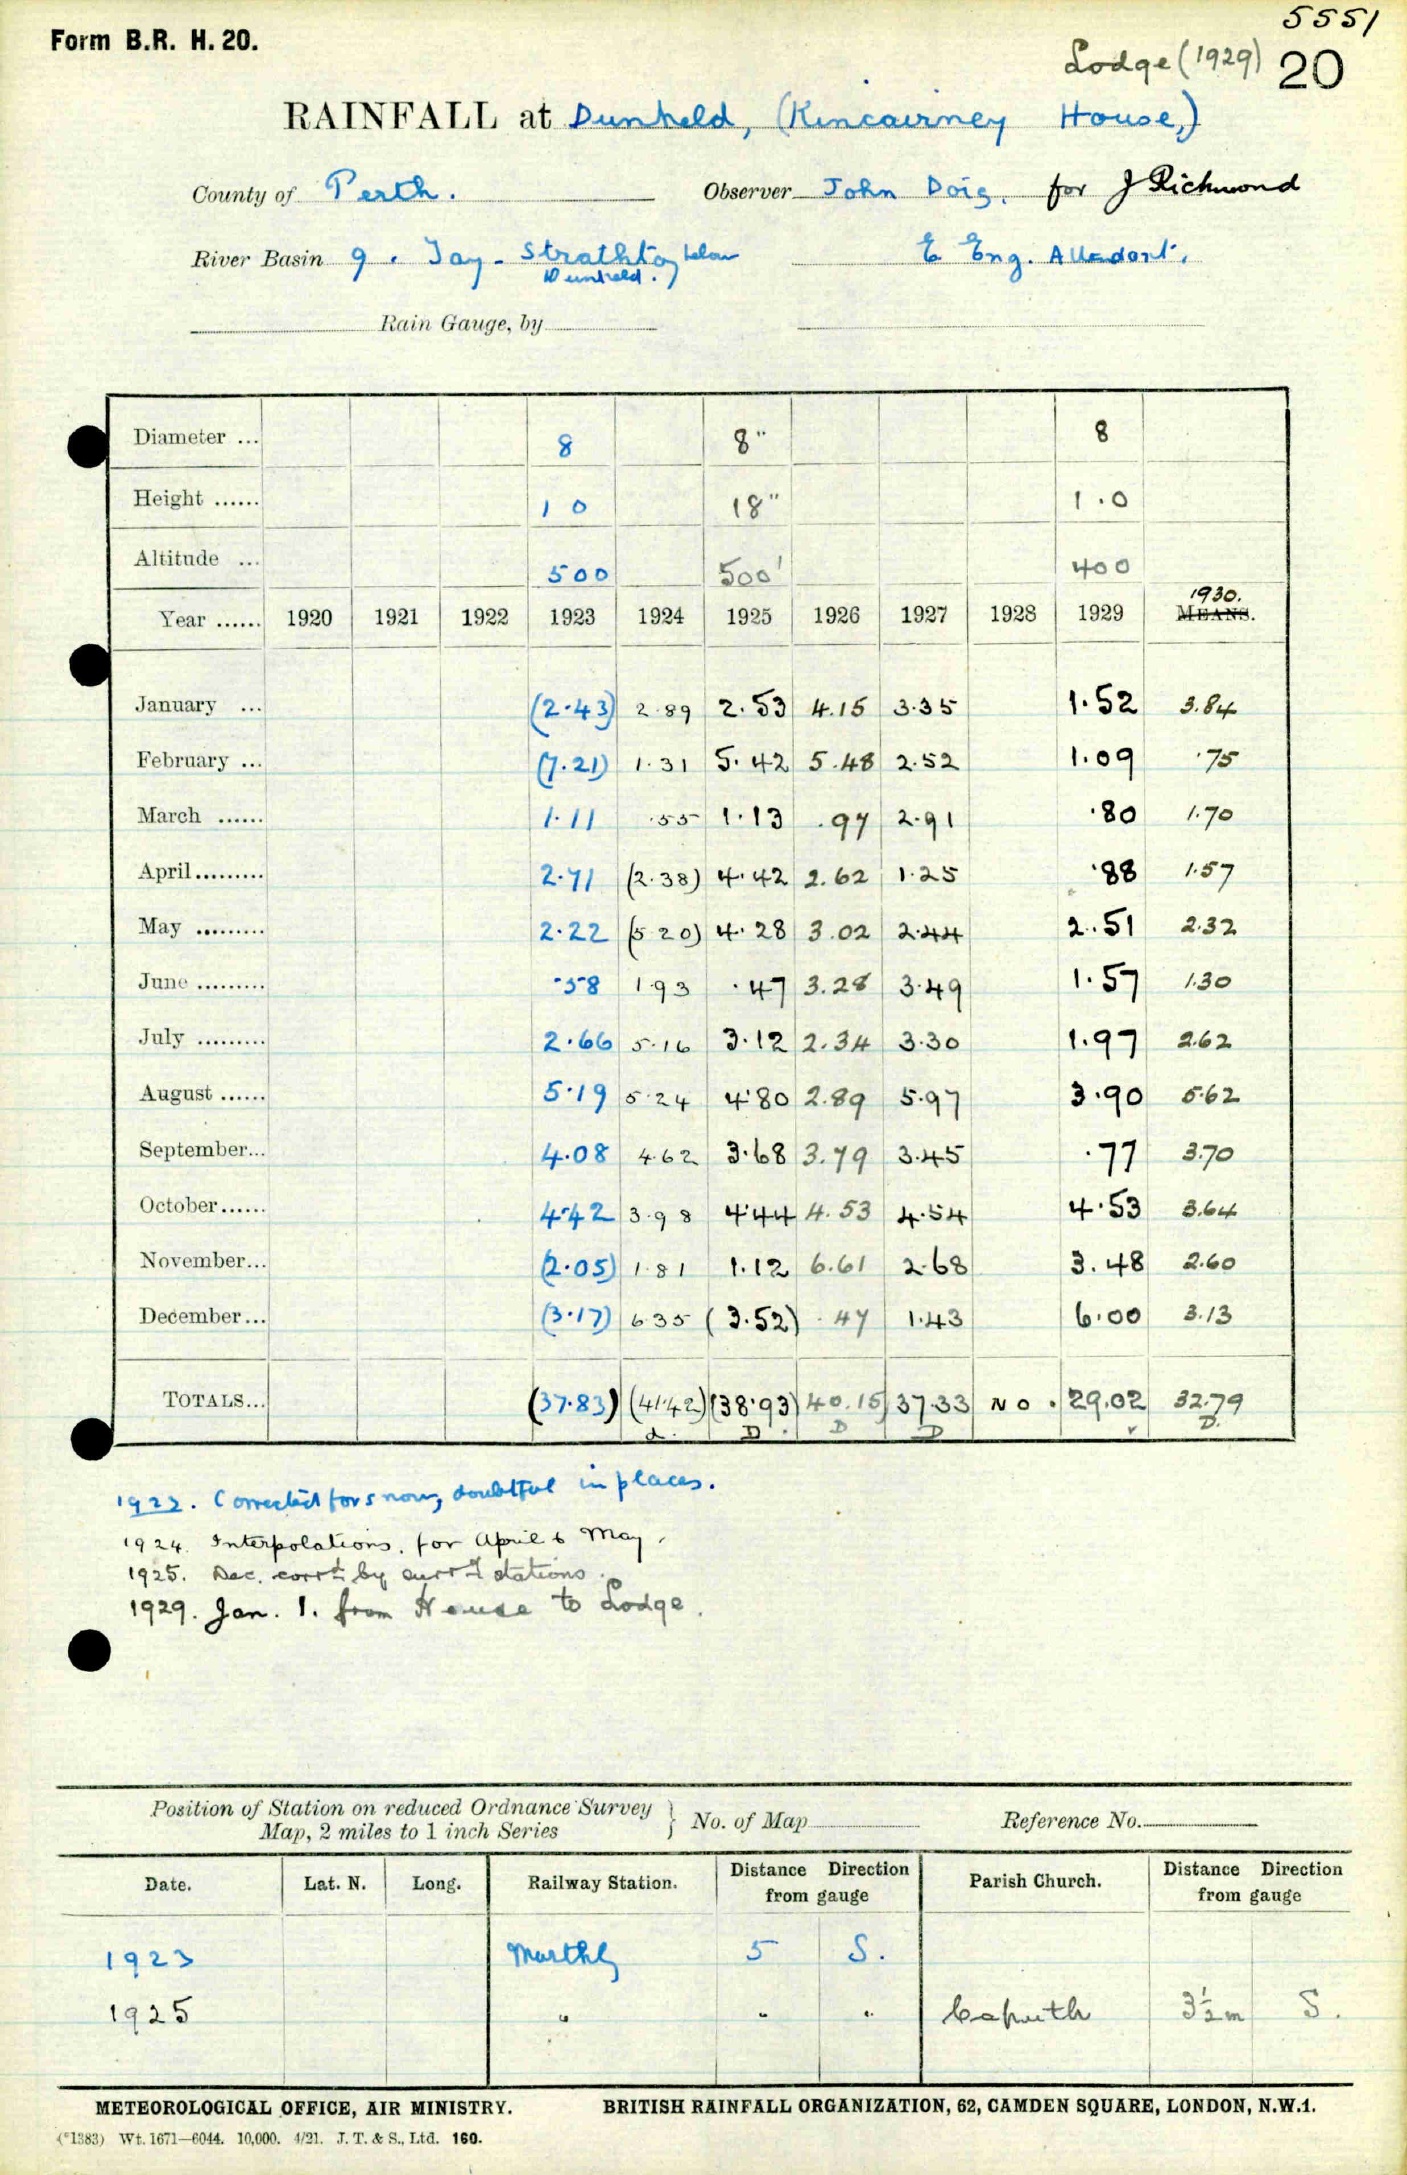 5551
Form B.R. H. 20.
Lodge (1929) 20
RAINFALL at Dunkeld, (Kincairney House,)
County of Perth. Observer John Doig. for J Richmond
River Basin 9. Tay - Strathtay below Dunkeld.
Rain Gauge, by
Diameter ... 8 8" 8
Height ...... 1 0 18" 1.0
Altitude ... 500 500' 400
1930.
Year ...... 1920 1921 1922 1923 1924 1925 1926 1927 1928 1929 MEANS.
January ... (2.43) 2.89 2.53 4.15 3.35 1.52 3.84
February ... (7.21) 1.31 5.42 5.48 2.52 1.09 .75
March ...... 1.11 .55 1.13 .97 2.91 .80 1.70
April......... 2.71 (2.38) 4.42 2.62 1.25 .88 1.57
May ......... 2.22 (5 20) 4.28 3.02 2.44 2.51 2.32
June ......... .58 1.93 .47 3.28 3.49 1.57 1.30
July ......... 2.66 5.16 3.12 2.34 3.30 1.97 2.62
August ...... 5.19 5.24 4.80 2.89 5.97 3.90 5.62
September... 4.08 4.62 3.68 3.79 3.45 .77 3.70
October...... 4.42 3.98 4.44 4.53 4.54 4.53 3.64
November... (2.05) 1.81 1.12 6.61 2.68 3.48 2.60
December... (3.17) 6.35 (3.52) .47 1.43 6.00 3.13
TOTALS... (37.83) (41.42) (38.93) 40.15 37.33 NO. 29.02 32.79
d. D. D D D.
Corrected for snow, doubtful in places.
1924. Interpolations. for April & May.
1925. Dec. corrtd by surrdg stations.
1929. Jan. 1. from House to Lodge.
Position of Station on reduced Ordnance Survey
Map, 2 miles to 1 inch Series } No. of Map Reference No.
Date. Lat. N. Long. Railway Station. Distance Direction from gauge Parish Church. Distance Direction from gauge
1923 Murthly 5 S.
1925 " " " Caputh 3½ m S.
METEOROLOGICAL OFFICE, AIR MINISTRY. BRITISH RAINFALL ORGANIZATION, 62, CAMDEN SQUARE, LONDON, N.W.1.
(*1383) Wt. 1671—6044. 10,000. 4/21. J. T. & S., Ltd. 160.